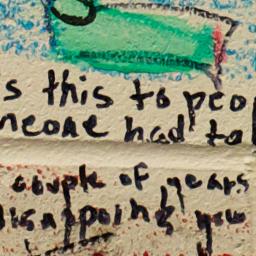 s this to peo
neone had to
couple of years
disappoint you